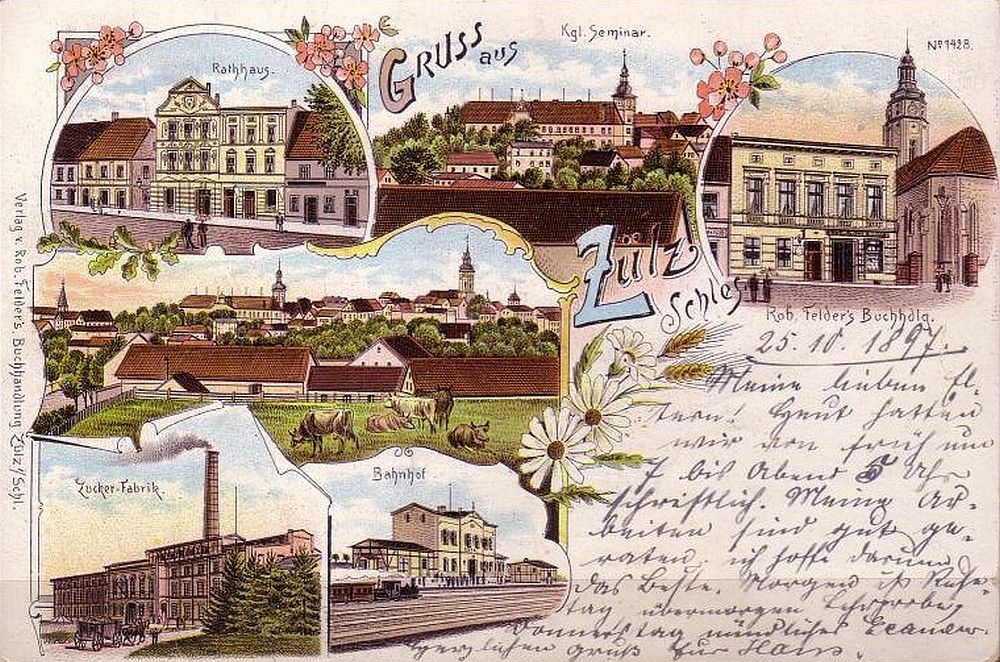 Gruss aus
Zülz
Schles
Kgl. Seminar.
Nº 1428.
Rathhaus.
Rob. Felder's Buchhdlg.
Zucker-Fabrik.
Bahnhof
Verlag v. Rob. Felder's Buchhandlung Zülz/Schl.
25. 10. 1897.
Meine lieben El-
tern! Heut hatten
wir von früh um
7 bis Abend 5 Uhr
schriftlich. Meine Ar-
beiten sind gut ge-
raten. ich hoffe darum
das Beste. Morgen ist Ruhe-
tag übermorgen
Donnerstag mündliches Examen.
Herzlichen Gruß Eur Hans.